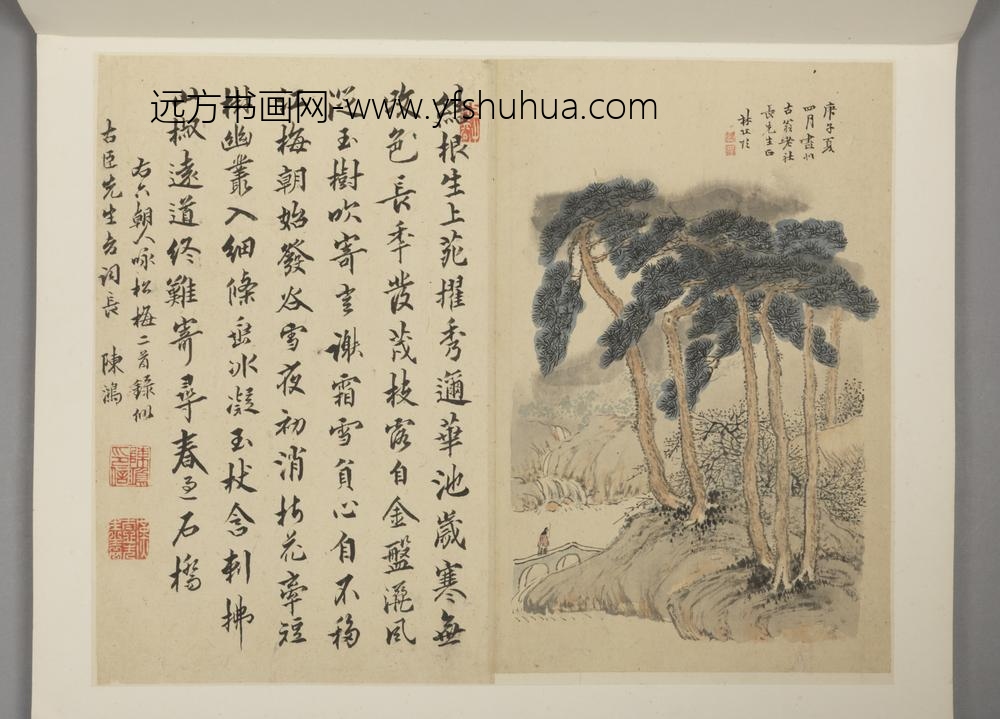 远方书画网-www.yfshuhua.com
庚子夏
四月畫似
古翁老社
長先生正
結根生上苑擢秀邇華池歲寒無
改色長年發茂枝露自金盤灑風
從玉樹吹寄言謝霜雪貞心自不移
梅朝始發谷雪夜初消折花牽短
樹幽叢入細條垂冰凝玉杖含刺拂
山椒遠道終難寄尋春過石橋
右六朝人咏松梅二首錄似
古臣先生方詞長 陳鴻